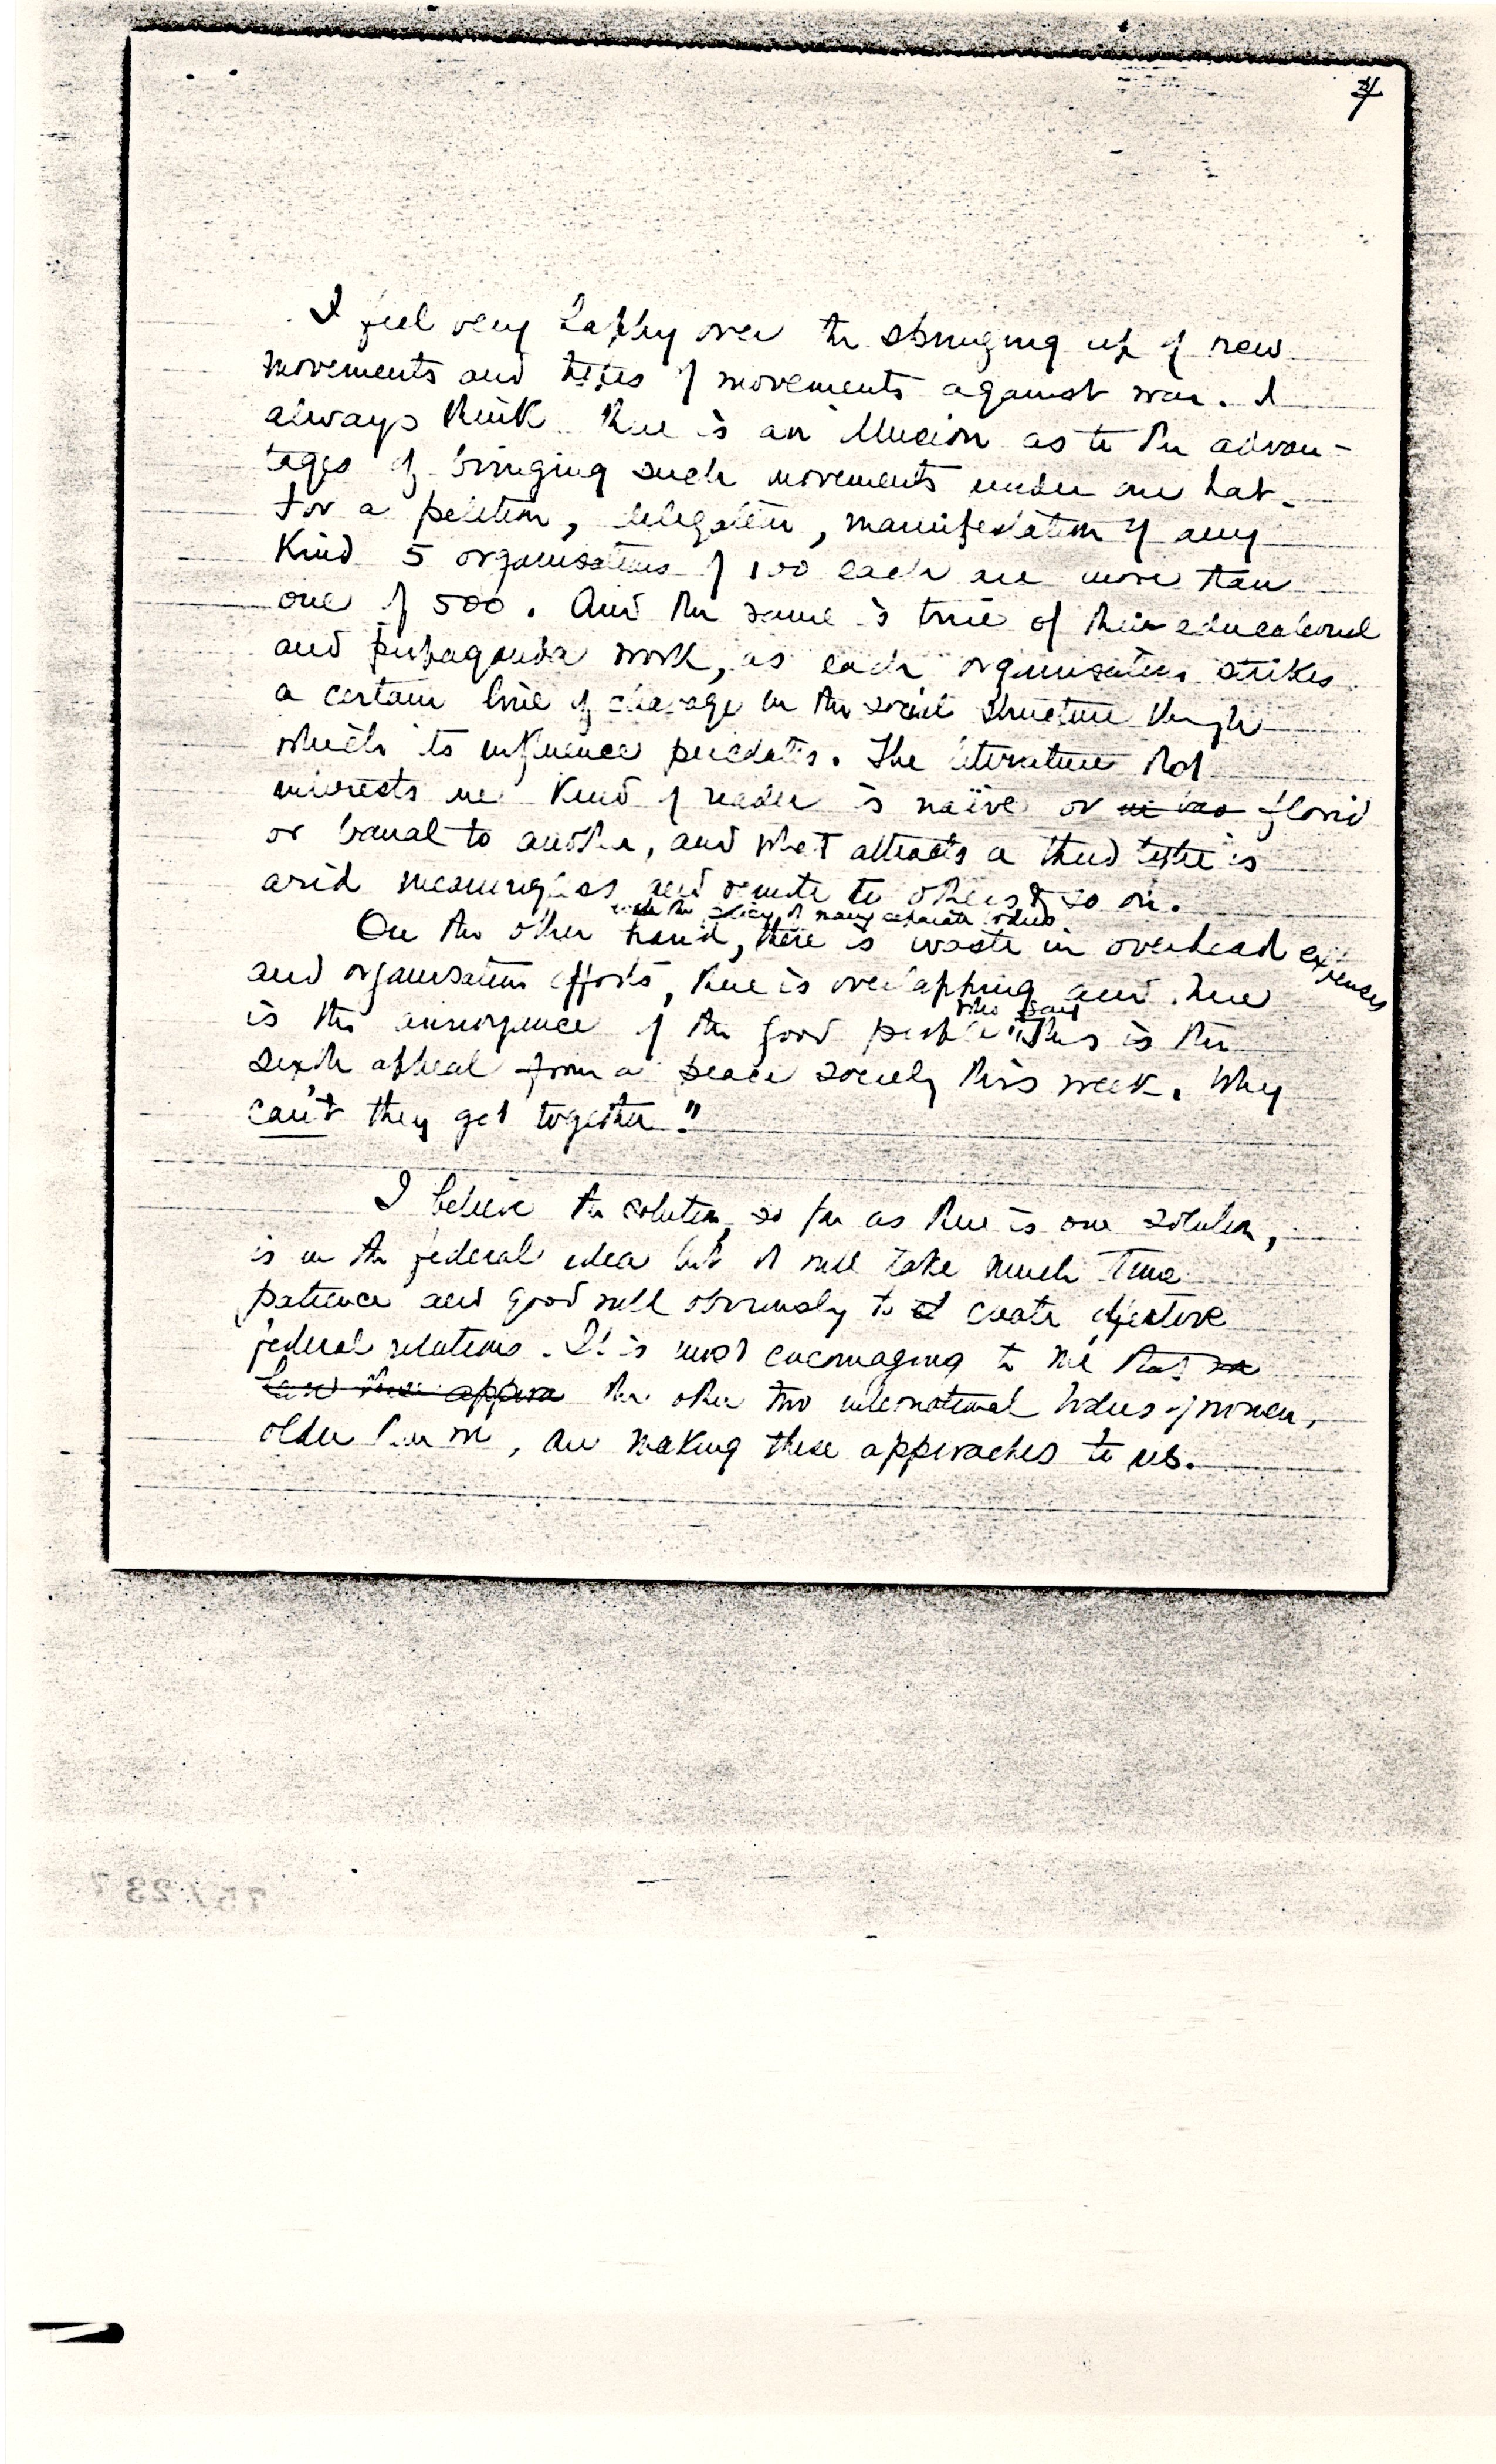 I feel very happy over the springing up of new
movements and types of movements against war. I
always think there is an illusion as to the advan-
tages of bringing such movements under one hat.
For a petition, delegation, manifestation of any
kind 5 organisations of 100 each are more than
one of 500. And the same is true of their educational
and propaganda work, as each organisation strikes
a certain line of cleavage in the social structure through
which its influence percolates. The literature that
interests one kind of reader is naïve or florid
or banal to another, and what attracts a third type is
arid meaningless and remote to others & so on.
with the policy of many separate bodies
On the other hand, there is waste in overhead expenses
and organisation efforts, there is overlapping and there
who say
is the annoyance of the good people "This is the
sixth appeal from a peace society this week. Why
can't they get together."
I believe the solution, so far as there is one solution,
is in the federal idea but it will take much time
patience and good will obviously to create effective
federal relations. It is most encouraging to me that we
have these approa the other two international bodies of women,
older than we, are making these approaches to us.